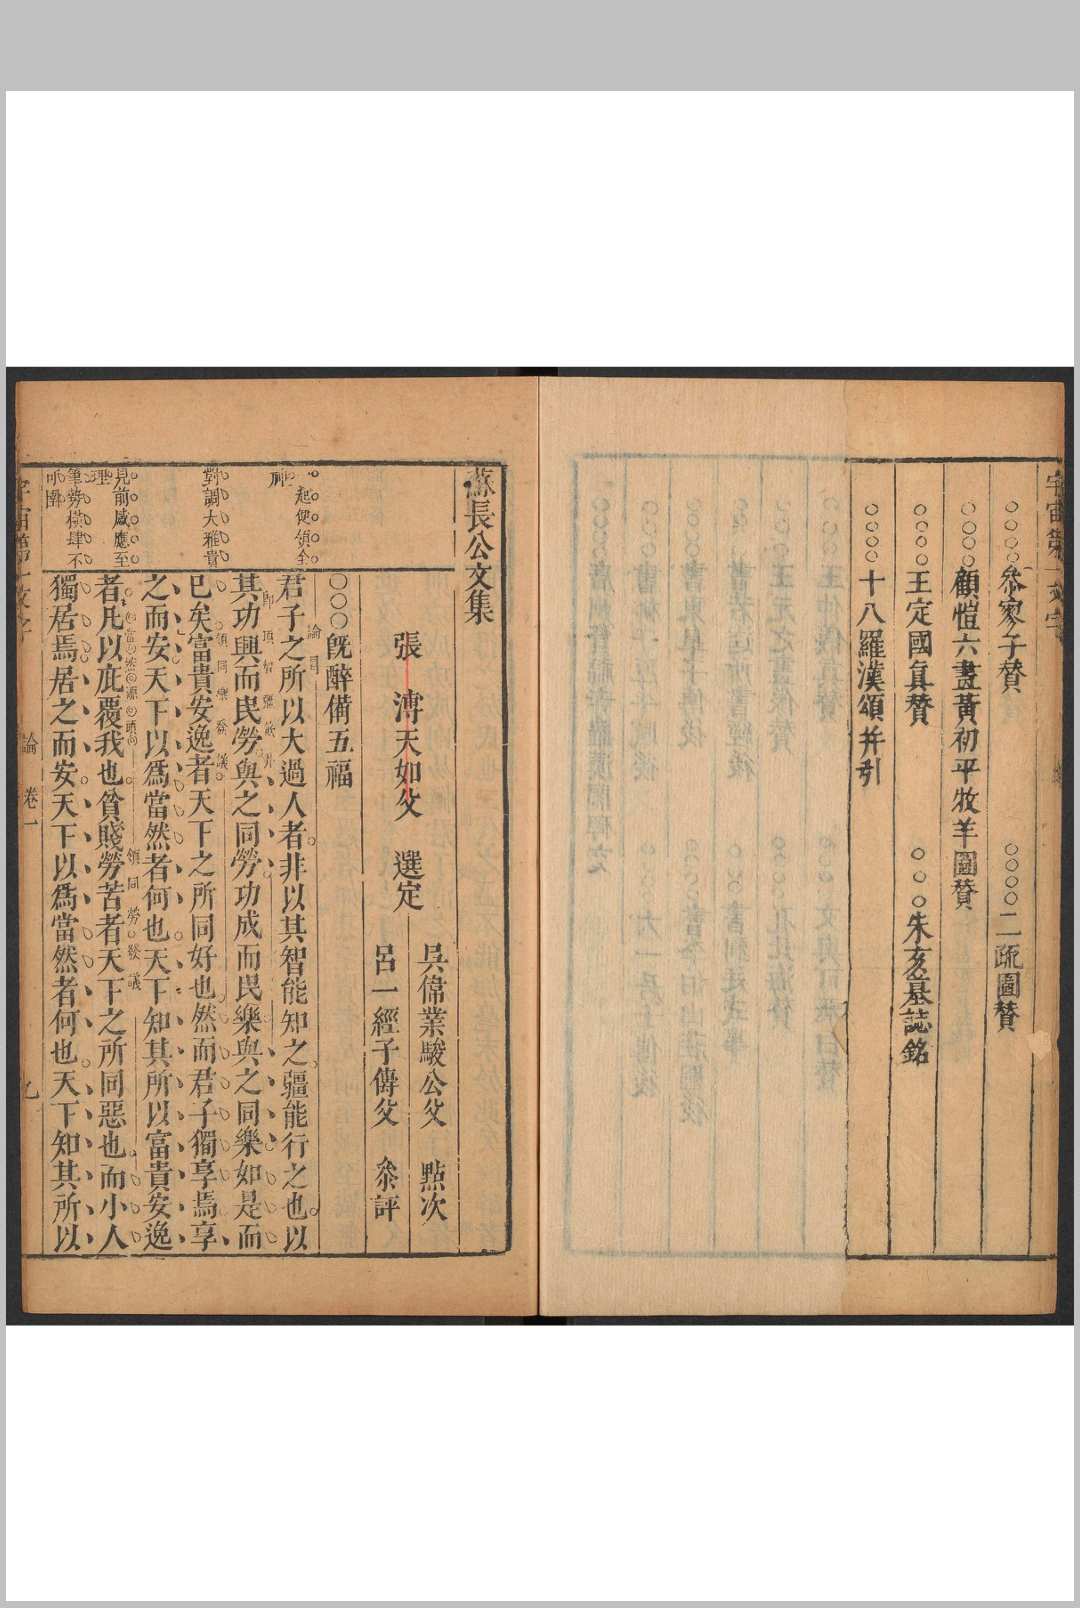 叅寥子贊　二疏圖贊
顧愷六畫黃初平牧羊圖贊
王定國眞贊　朱亥墓誌銘
十八羅漢頌并引
蘇長公文集
吳偉業駿公父　點次
張溥天如父　選定
呂一經子傳父　叅評
旣醉備五福
君子之所以大過人者非以其智能知之疆能行之也以
其功興而民勞與之同勞功成而民樂與之同樂如是而
已矣富貴安逸者天下之所同好也然而君子獨享焉享
之而安天下以爲當然者何也天下知其所以富貴安逸
者凡以庇覆我也貧賤勞苦者天下之所同惡也而小人
獨居焉居之而安天下以爲當然者何也天下知其所以
起便領全
神
對講大雅貴
見前感應至
理
筆勢橫肆不
可圍
領同樂發議
領同勞發議
論　卷一